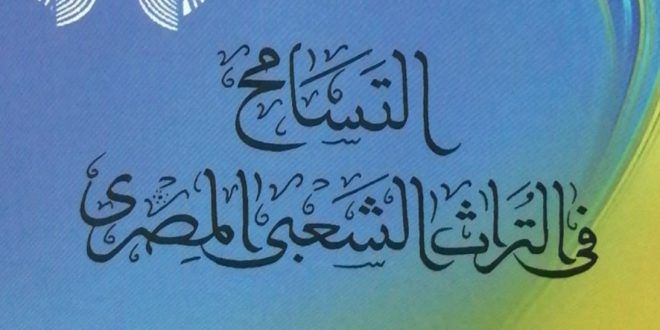 التسامح
فى التراث الشعبى المصرى